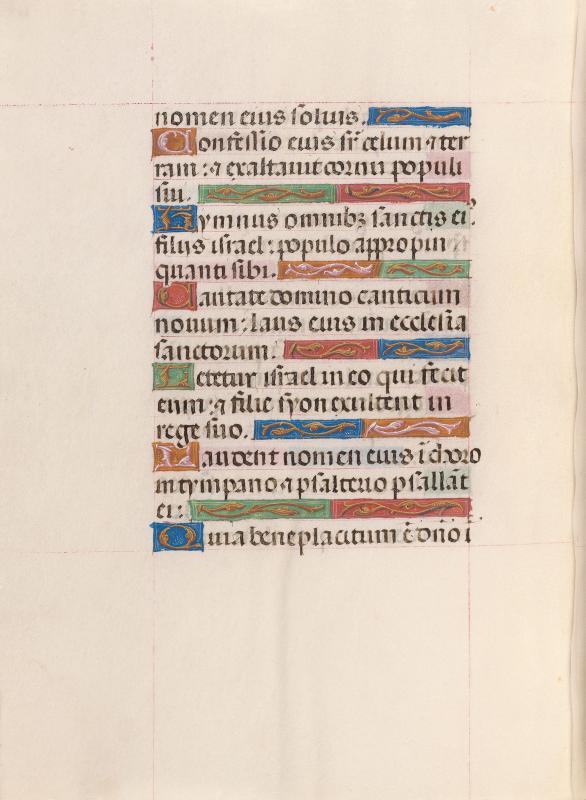 nomen eius solius.
Confessio eius sr̄ celum ⁊ ter
ram: ⁊ exaltauit cornu populi
sui.
Hymnus omnibꝫ sanctis ei⁹
filiis israel: populo appropin
quanti sibi.
Cantate domino canticum
nouum: laus eius in ecclesia
sanctorum.
Letetur israel in eo qui fecit
eum: ⁊ filie syon exultent in
rege suo.
Laudent nomen eius ī choro
in tympano ⁊ psalterio psallāt
ei:
Quia beneplacitum ē dn̄o ī